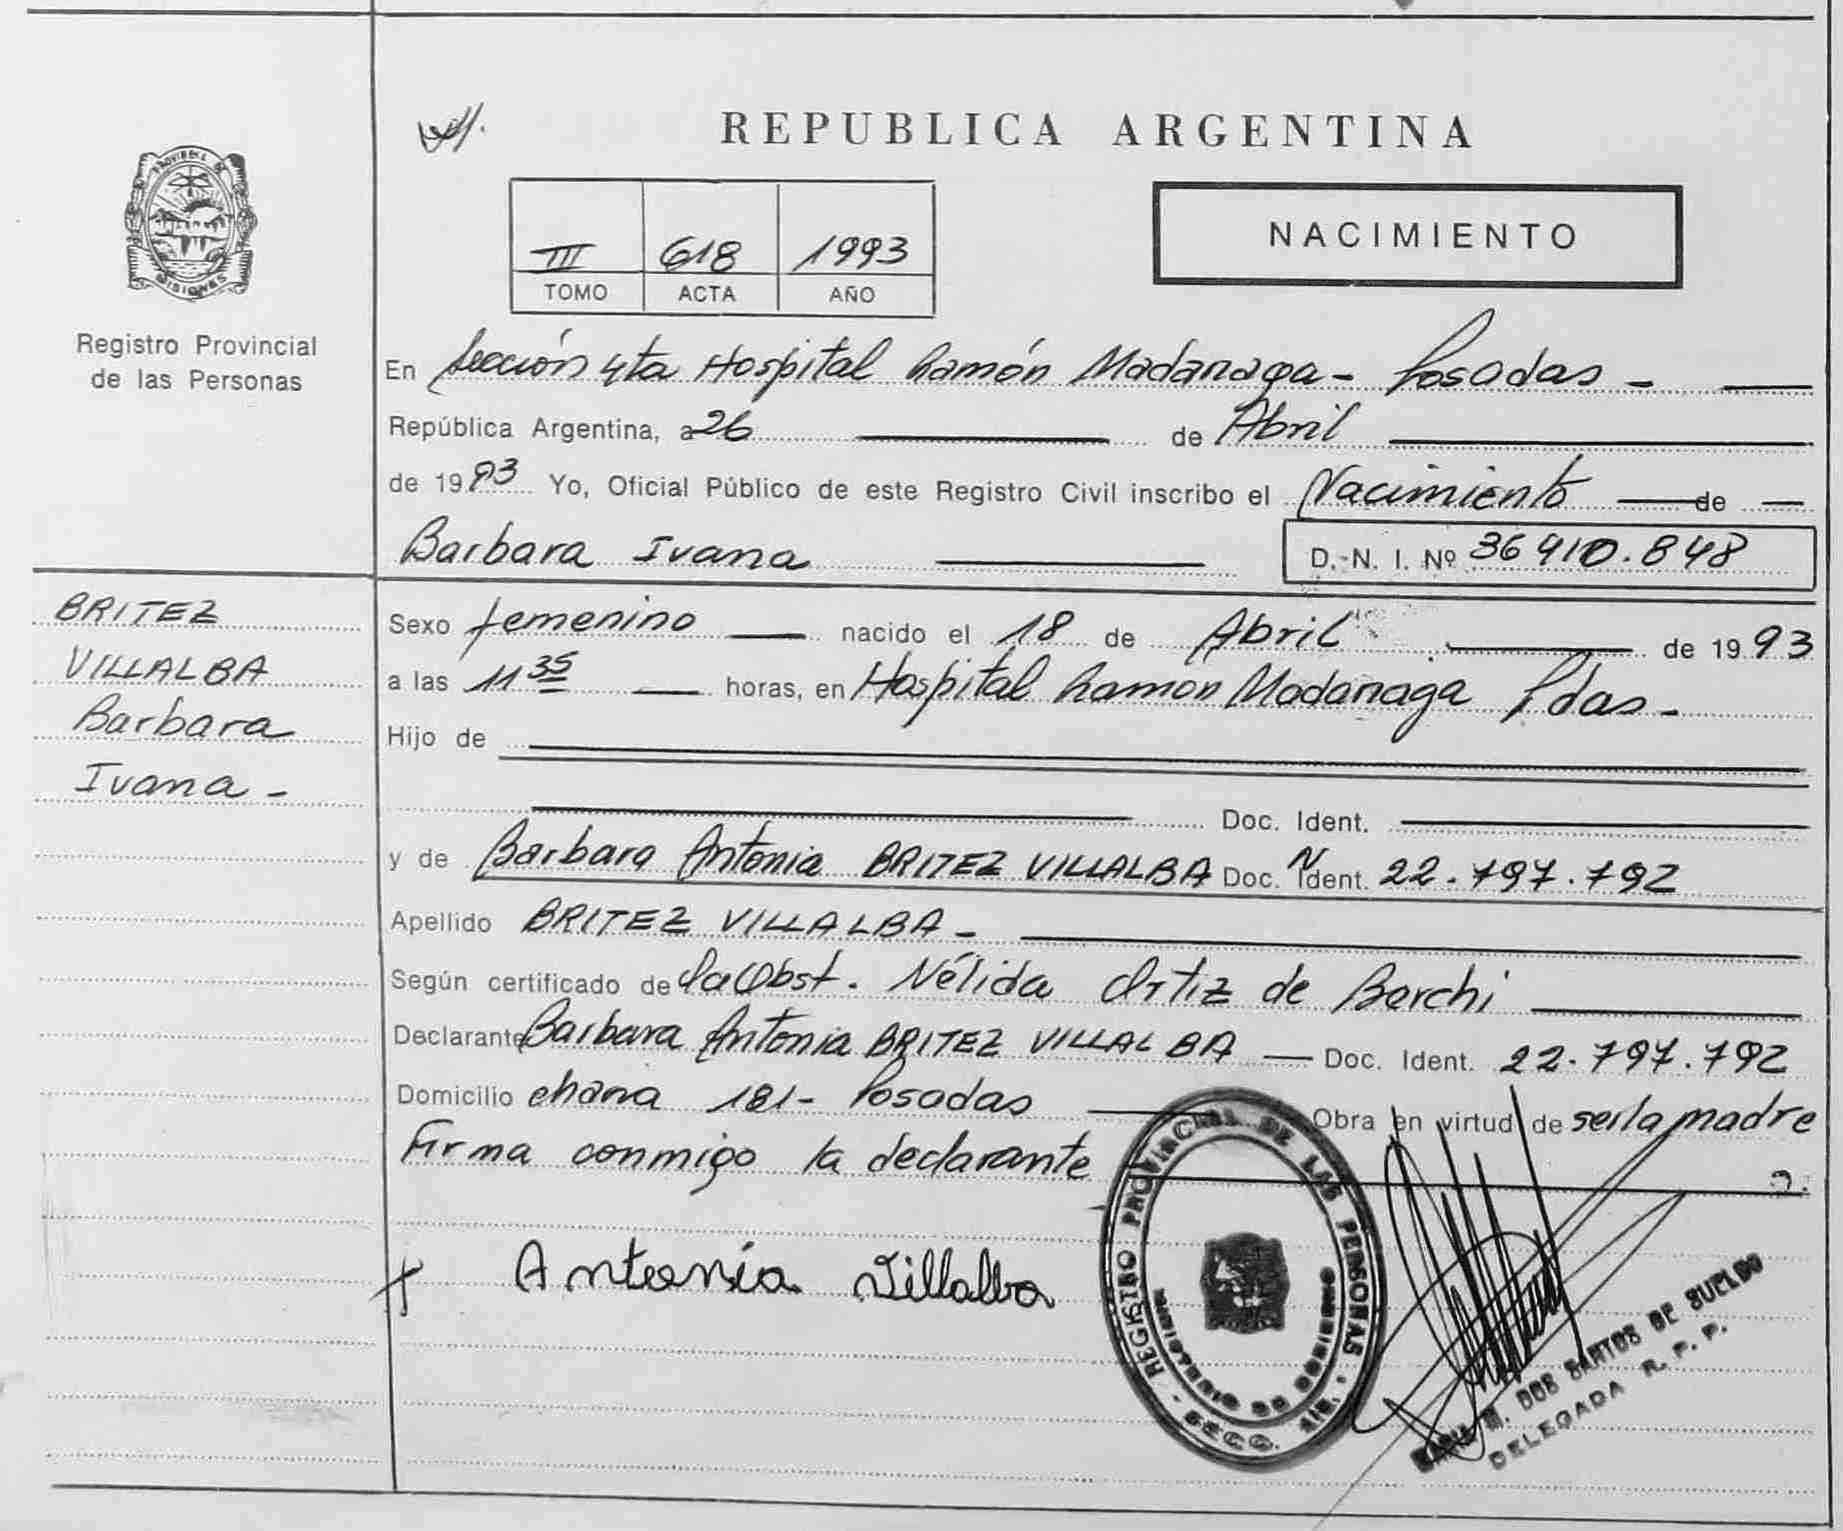 REPUBLICA ARGENTINA
PROVINCIA DE MISIONES
Registro Provincial
de las Personas
III 618 1993
TOMO ACTA AÑO
NACIMIENTO
En Sección 4ta Hospital Ramón Madariaga - Posadas -
República Argentina, a 26 de Abril
de 1993 Yo, Oficial Público de este Registro Civil inscribo el Nacimiento de
Barbara Ivana D.N.I. Nº 36410.848
BRITEZ
VILLALBA
Barbara
Ivana -
Sexo femenino nacido el 18 de Abril de 1993
a las 11 35 horas, en Hospital Ramon Madariaga Pdas -
Hijo de
Doc. Ident.
y de Barbara Antonia BRITEZ VILLALBA Doc. Ident. N 22.797.792
Apellido BRITEZ VILLALBA -
Según certificado de la Obst. Nélida Ortiz de Borchi
Declarante Barbara Antonia BRITEZ VILLALBA Doc. Ident. 22.797.792
Domicilio chana 181 - Posadas Obra en virtud de ser la madre
Firma conmigo la declarante
Antonia Villalba
REGISTRO PROVINCIAL DE LAS PERSONAS
M. DOS SANTOS DE SUELDO
DELEGADA R. P. P.